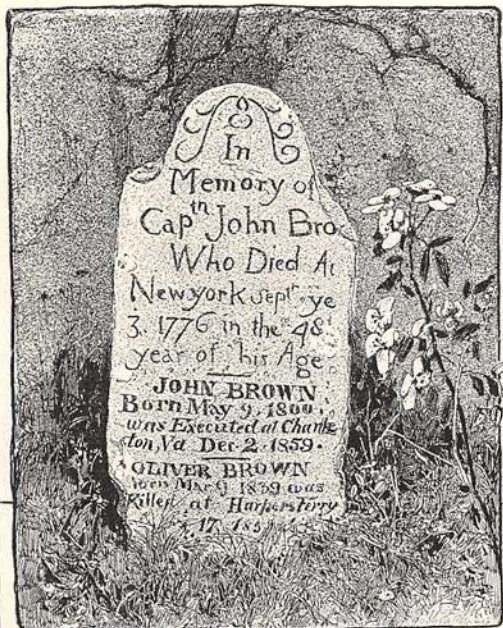 In
Memory of
Capth John Bro
Who Died At
Newyork Sept. ye
3. 1776 in the 48
year of his Age
JOHN BROWN
Born May 9, 1800.
was Executed at Charles
ton, Va Dec. 2. 1859.
OLIVER BROWN
born Mar 9 1839 was
Killed at Harpersferry
17 185